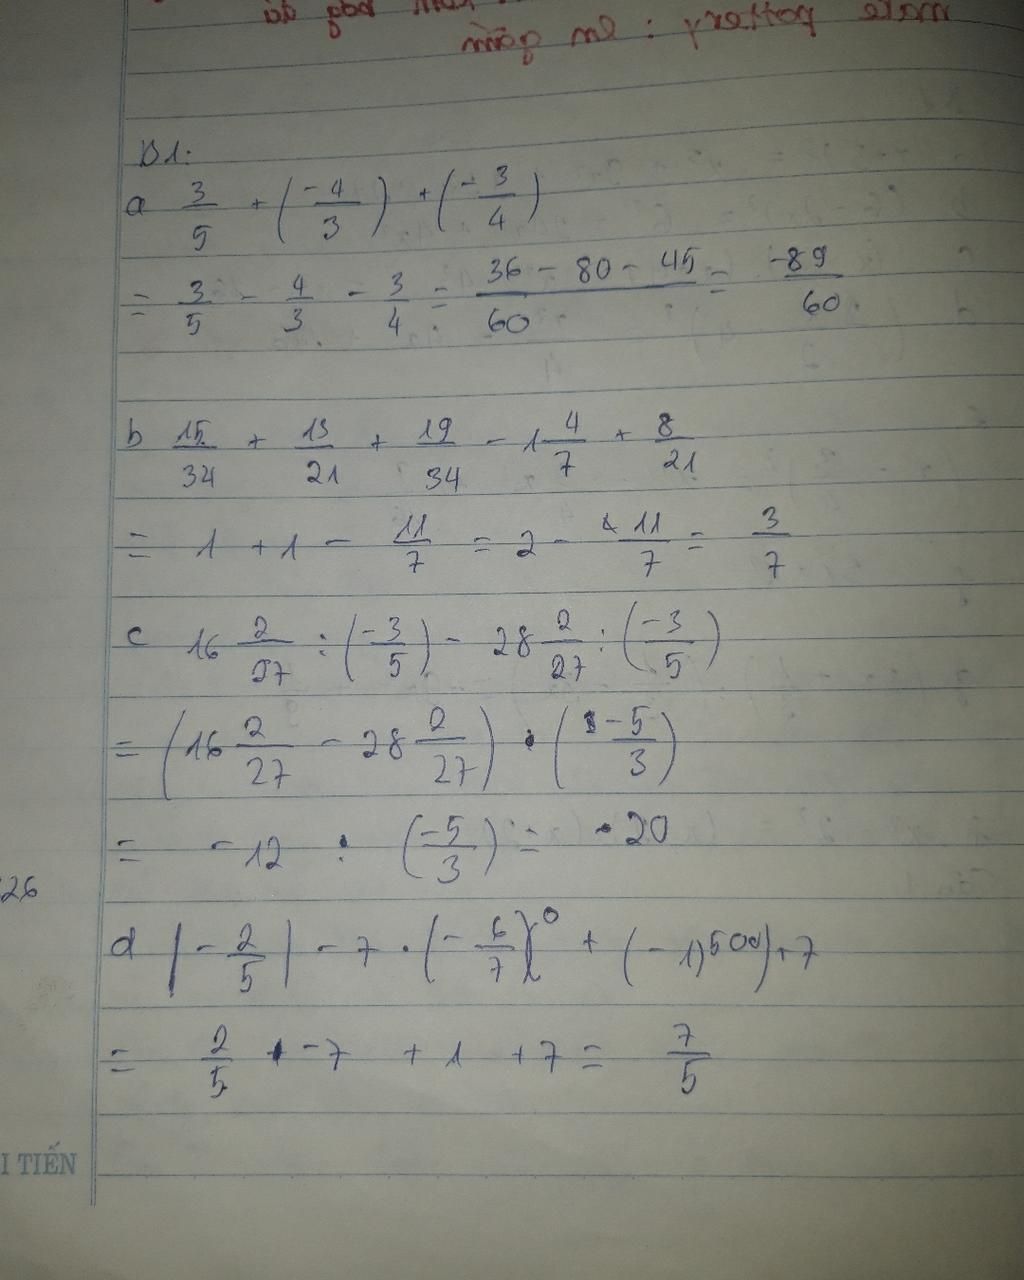 B1.
a 3/5 + (-4/3) + (-3/4)
= 3/5 - 4/3 - 3/4 = (36 - 80 - 45)/60 = -89/60
b 15/34 + 13/21 + 19/34 - 1 4/7 + 8/21
= 1 + 1 - 11/7 = 2 - 11/7 = 3/7
c 16 2/27 : (-3/5) - 28 2/27 : (-3/5)
= (16 2/27 - 28 2/27) · (-5/3)
= -12 · (-5/3) = 20
26
d |-2/5| - 7 · (-6/7)^0 + (-1)^500) + 7
= 2/5 - 7 + 1 + 7 = 7/5
I TIẾN